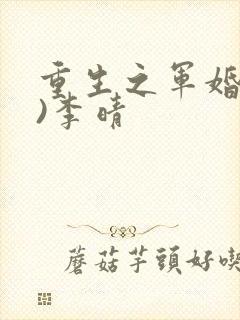 重生之軍婚
)李晴
蘑菇芋頭好喫